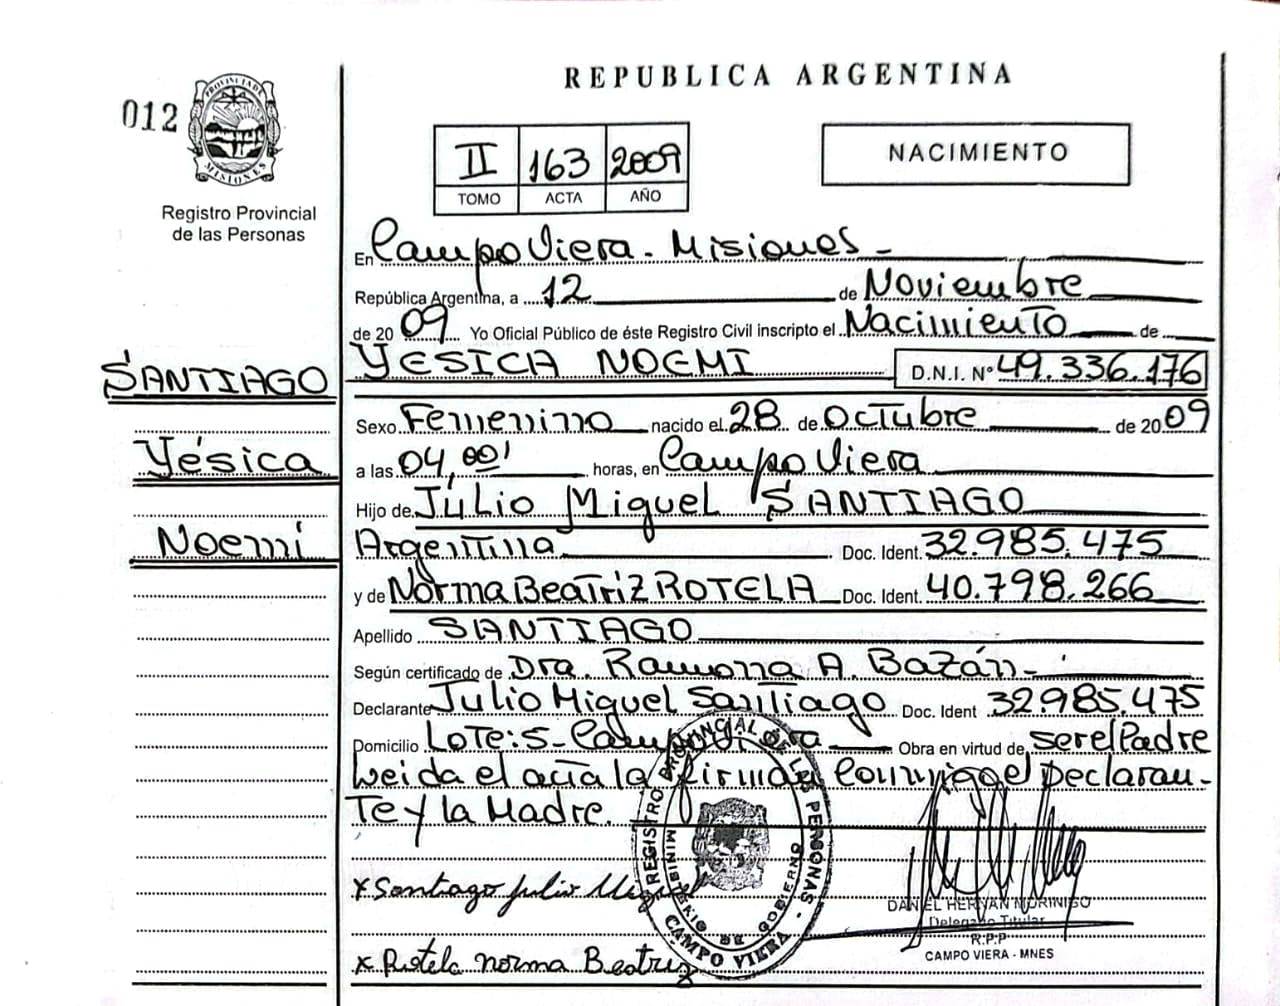 REPUBLICA ARGENTINA
012
PROVINCIA DE MISIONES
Registro Provincial
de las Personas
II 163 2009
TOMO ACTA AÑO
NACIMIENTO
En Campo Viera - Misiones -
República Argentina, a 12 de Noviembre
de 20 09 Yo Oficial Público de éste Registro Civil inscripto el Nacimiento de
YESICA NOEMI D.N.I. Nº 49.336.176
SANTIAGO
Yésica
Noemi
Sexo Femenino nacido el 28 de Octubre de 2009
a las 04,00' horas, en Campo Viera
Hijo de Julio Miguel SANTIAGO
Argentina Doc. Ident. 32.985.475
y de Norma Beatriz ROTELA Doc. Ident. 40.798.266
Apellido SANTIAGO
Según certificado de Dra. Ramona A. Bazán -
Declarante Julio Miguel Santiago Doc. Ident 32.985.475
Domicilio Lote: 5 - Campo Viera Obra en virtud de ser el Padre
Leida el acta la firman conmigo el Declaran-
te y la Madre.
x Santiago Julio Miguel
x Rotela Norma Beatriz
REGISTRO PROVINCIAL DE LAS PERSONAS - CAMPO VIERA -
MINISTERIO DE GOBIERNO
DANIEL HERNAN MORINIGO
Delegado Titular
R.P.P
CAMPO VIERA - MNES